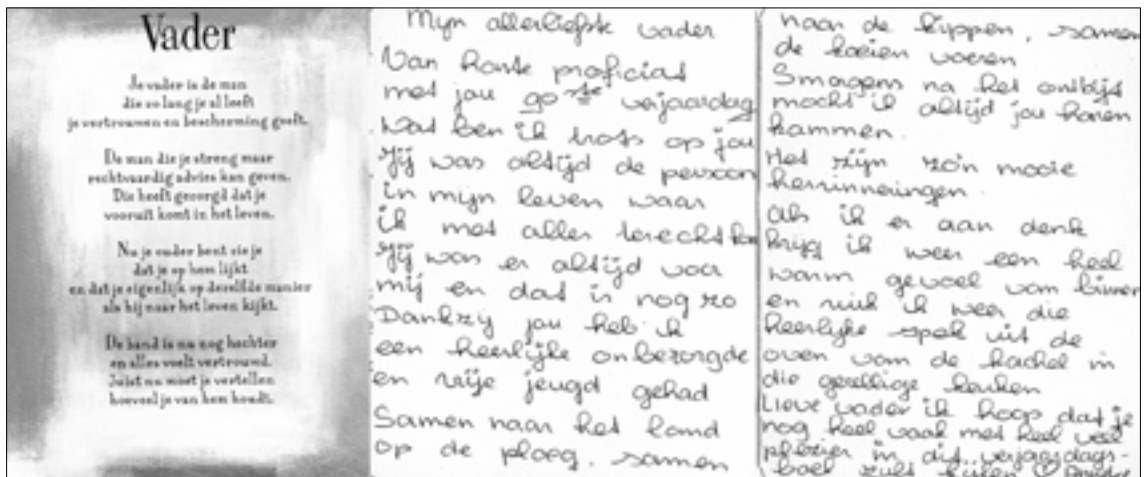 Vader
Je vader is de man
die zo lang je al leeft
je vertrouwen en bescherming geeft.
De man die je streng maar
rechtvaardig advies kan geven.
Die heeft gezorgd dat je
vooruit komt in het leven.
Nu je ouder bent zie je
dat je op hem lijkt
en dat je eigenlijk op dezelfde manier
als hij naar het leven kijkt.
De band is nu nog hechter
en alles voelt vertrouwd.
Juist nu moet je vertellen
hoeveel je van hem houdt.
Mijn allerliefste vader
Van harte proficiat
met jou 90ste verjaardag
Wat ben ik trots op jou
Jij was altijd de persoon
in mijn leven waar
ik met alles terecht kon
Jij was er altijd voor
mij en dat is nog zo
Dankzij jou heb ik
een heerlijke onbezorgde
en vrije jeugd gehad
Samen naar het land
op de ploeg, samen
naar de kippen, samen
de koeien voeren
Smorgens na het ontbijt
mocht ik altijd jou haren
kammen.
Het zijn zo'n mooie
herinneringen.
Als ik er aan denk
krijg ik weer een heel
warm gevoel van binnen
en ruik ik weer die
heerlijke spek uit de
oven van de kachel in
die gezellige keuken
Lieve vader ik hoop dat je
nog heel vaak met heel veel
plezier in dit verjaardags-
boek zult kijken